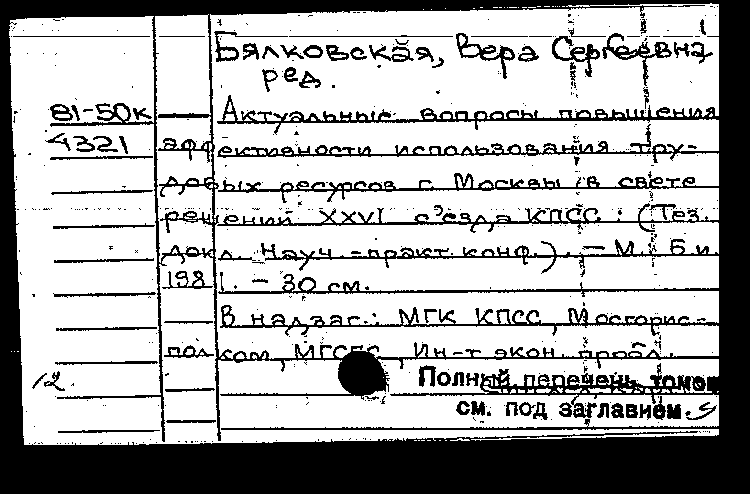 Бялковская, Вера Сергеевна
ред.
81-50к — Актуальные вопросы повышения
4321 эффективности использования тру-
довых ресурсов г. Москвы в свете
решений XXVI с'езда КПСС : (Тез.
докл. Науч.-практ. конф.). — М. : Б.и.
1981. — 30 см.
В надзаг.: МГК КПСС, Мосгорис-
полком, МГСПС, Ин-т экон. пробл.
12. Полный перечень томов
см. под заглавием.